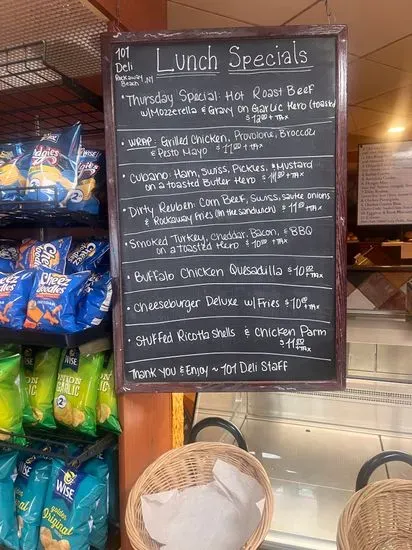 101
Deli
Rockaway
Beach NY
Lunch Specials
*Thursday Special: Hot Roast Beef
w/Mozzerella & Gravy on Garlic Hero (toasted)
$12.00 + TAX
*WRAP: Grilled Chicken, Provolone, Broccoli
& Pesto Mayo $11.00 + TAX
*Cubano: Ham, Swiss, Pickles, *Mustard
on a toasted Butter Hero $11.00 + TAX
*Dirty Reuben: Corn Beef, Swiss, sautee onions
& Rockaway Fries (Im the sandwich) $11.00 + TAX
*Smoked Turkey, Cheddar, Bacon, & BBQ
on a Toasted Hero $10.00 + TAX
*Buffalo Chicken Quesadilla $10.00 + TAX
*Cheeseburger Deluxe w/ Fries $10.00 + TAX
*Stuffed Ricotta Shells & Chicken Parm
$11.00 + TAX
Thank you & Enjoy ~ 101 Deli Staff
Ridgies
Cheez
Doodles
Cheez
Doodles
WISE
ONION
GARLIC
WISE
golden
Original